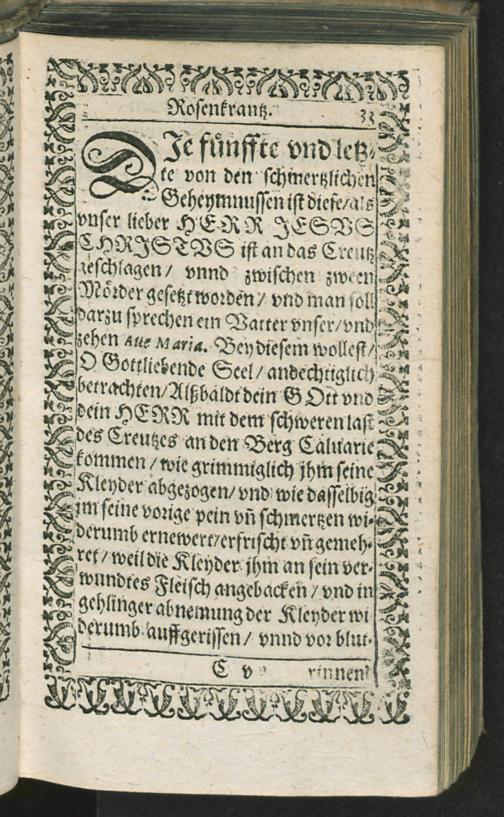 Rosenkrantz. 33
DJe fünffte vnd letz-
te von den schmertzlichen
Geheymnussen ist diese/als
vnser lieber HERR JESVS
CHRISTVS ist an das Creutz
geschlagen/ vnnd zwischen zween
Mörder gesetzt worden/ vnd man soll
darzu sprechen ein Vatter vnser/vnd
zehen Aue Maria. Bey diesem wollest/
O Gottliebende Seel/ andechtiglich
betrachten/Alßbaldt dein GOtt vnd
dein HERR mit dem schweren last
des Creutzes an den Berg Caluarie
kommen/ wie grimmiglich jhm seine
Kleyder abgezogen/ vnd wie dasselbig
jm seine vorige pein vñ schmertzen wi-
derumb ernewert/erfrischt vñ gemeh-
ret/ weil die Kleyder jhm an sein ver-
wundtes Fleisch angebacken/ vnd in
gehlinger abnemung der Kleyder wi
derumb auffgerissen/ vnnd vor blut-
C v rinnen